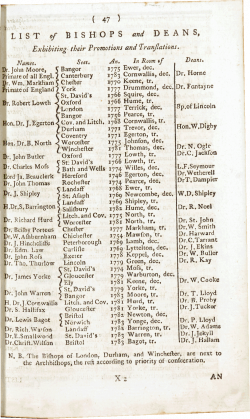 ( 47 )
LIST of BISHOPS and DEANS,
Exhibiting their Promotions and Translations.
Names. Sees. An. In Room of Deans.
Dr. John Moore, Bangor 1775 Ewer, dec.
Primate of all Engl. Canterbury 1783 Cornwallis, dec. Dr. Horne
Dr. Wm. Markham Chester Keene, tr.
Primate of England York Drummond, dec. Dr. Fontayne
St. David's Squire, dec.
Dr. Robert Lowth Oxford 1766 Hume, tr.
London 1777 Terrick, dec. Bp. of Lincoln
Bangor Pearce, tr.
Hon. Dr. J. Egerton Cov. and Litch. Cornwallis, tr.
Durham 1771 Trevor, dec. Hon. W. Digby
Coventry 1771 Egerton, tr.
Hon. Dr. B. North Worcester Johnson, dec.
Winchester 1781 Thomas, dec. Dr. N. Ogle
Dr. John Butler Oxford Lowth, tr. Dr. C. Jackson
Dr. Charles Moss St. David's Lowth, tr.
Bath and Wells 1774 Willes, dec. L. F. Seymour
Lord Ja. Beauclerk Hereford 1746 Egerton, dec. Dr. Wetherell
Dr. John Thomas Rochester 1774 Pearce, dec. Dr. T. Dampier
Dr. J. Shipley Landaff 1769 Ewer, tr.
St. Asaph 1769 Newcombe, dec. W. D. Shipley
H. Dr. S. Barrington Landaff 1769 Shipley, tr.
Salisbury 1782 Hume, dec. Dr. R. Noel
Dr. Richard Hurd Litch. and Cov. North, tr.
Worcester 1781 North, tr. Dr. St. John
Dr. Beilby Porteus Chester 1777 Markham, tr. Dr. W. Smith
Dr. W. Ashburnham Chichester Mawson, tr. Dr. Harward
Dr. J. Hinchcliffe Peterborough 1769 Lamb, dec. Dr. C. Tarrant
Dr. Edm. Law Carlisle Lyttelton, dec. Dr. J. Ekins
Dr. John Ross Exeter Keppel, dec. Dr. W. Buller
Dr. Tho. Thurlow Lincoln 1779 Green, dec. Dr. R. Kay
St. David's 1774 Moss, tr.
Dr. James Yorke Gloucester 1779 Warburton, dec.
Ely 1781 Keene, dec. Dr. W. Cooke
Dr. John Warren St. David's 1779 Yorke, tr.
Bangor 1783 Moore, tr. Dr. T. Lloyd
H. Dr. J. Cornwallis Litch. and Cov. 1781 Hurd, tr. Dr. B. Proby
Dr. S. Halifax Gloucester 1781 Yorke, tr. Dr. J. Tucker
Dr. Lewis Bagot Bristol 1782 Newton, dec.
Norwich 1783 Yonge, dec. Dr. P. Lloyd
Dr. Rich. Watson Landaff 1782 Barrington, tr. Dr. W. Adams
Dr. E. Smallwood St. David's 1783 Warren, tr. Dr. J. Jekyll
Dr. Christ. Wilson Bristol 1783 Bagot, tr. Dr. J. Hallam
N. B. The Bishops of London, Durham, and Winchester, are next to
the Archbishops, the rest according to priority of consecration.
X 2 AN